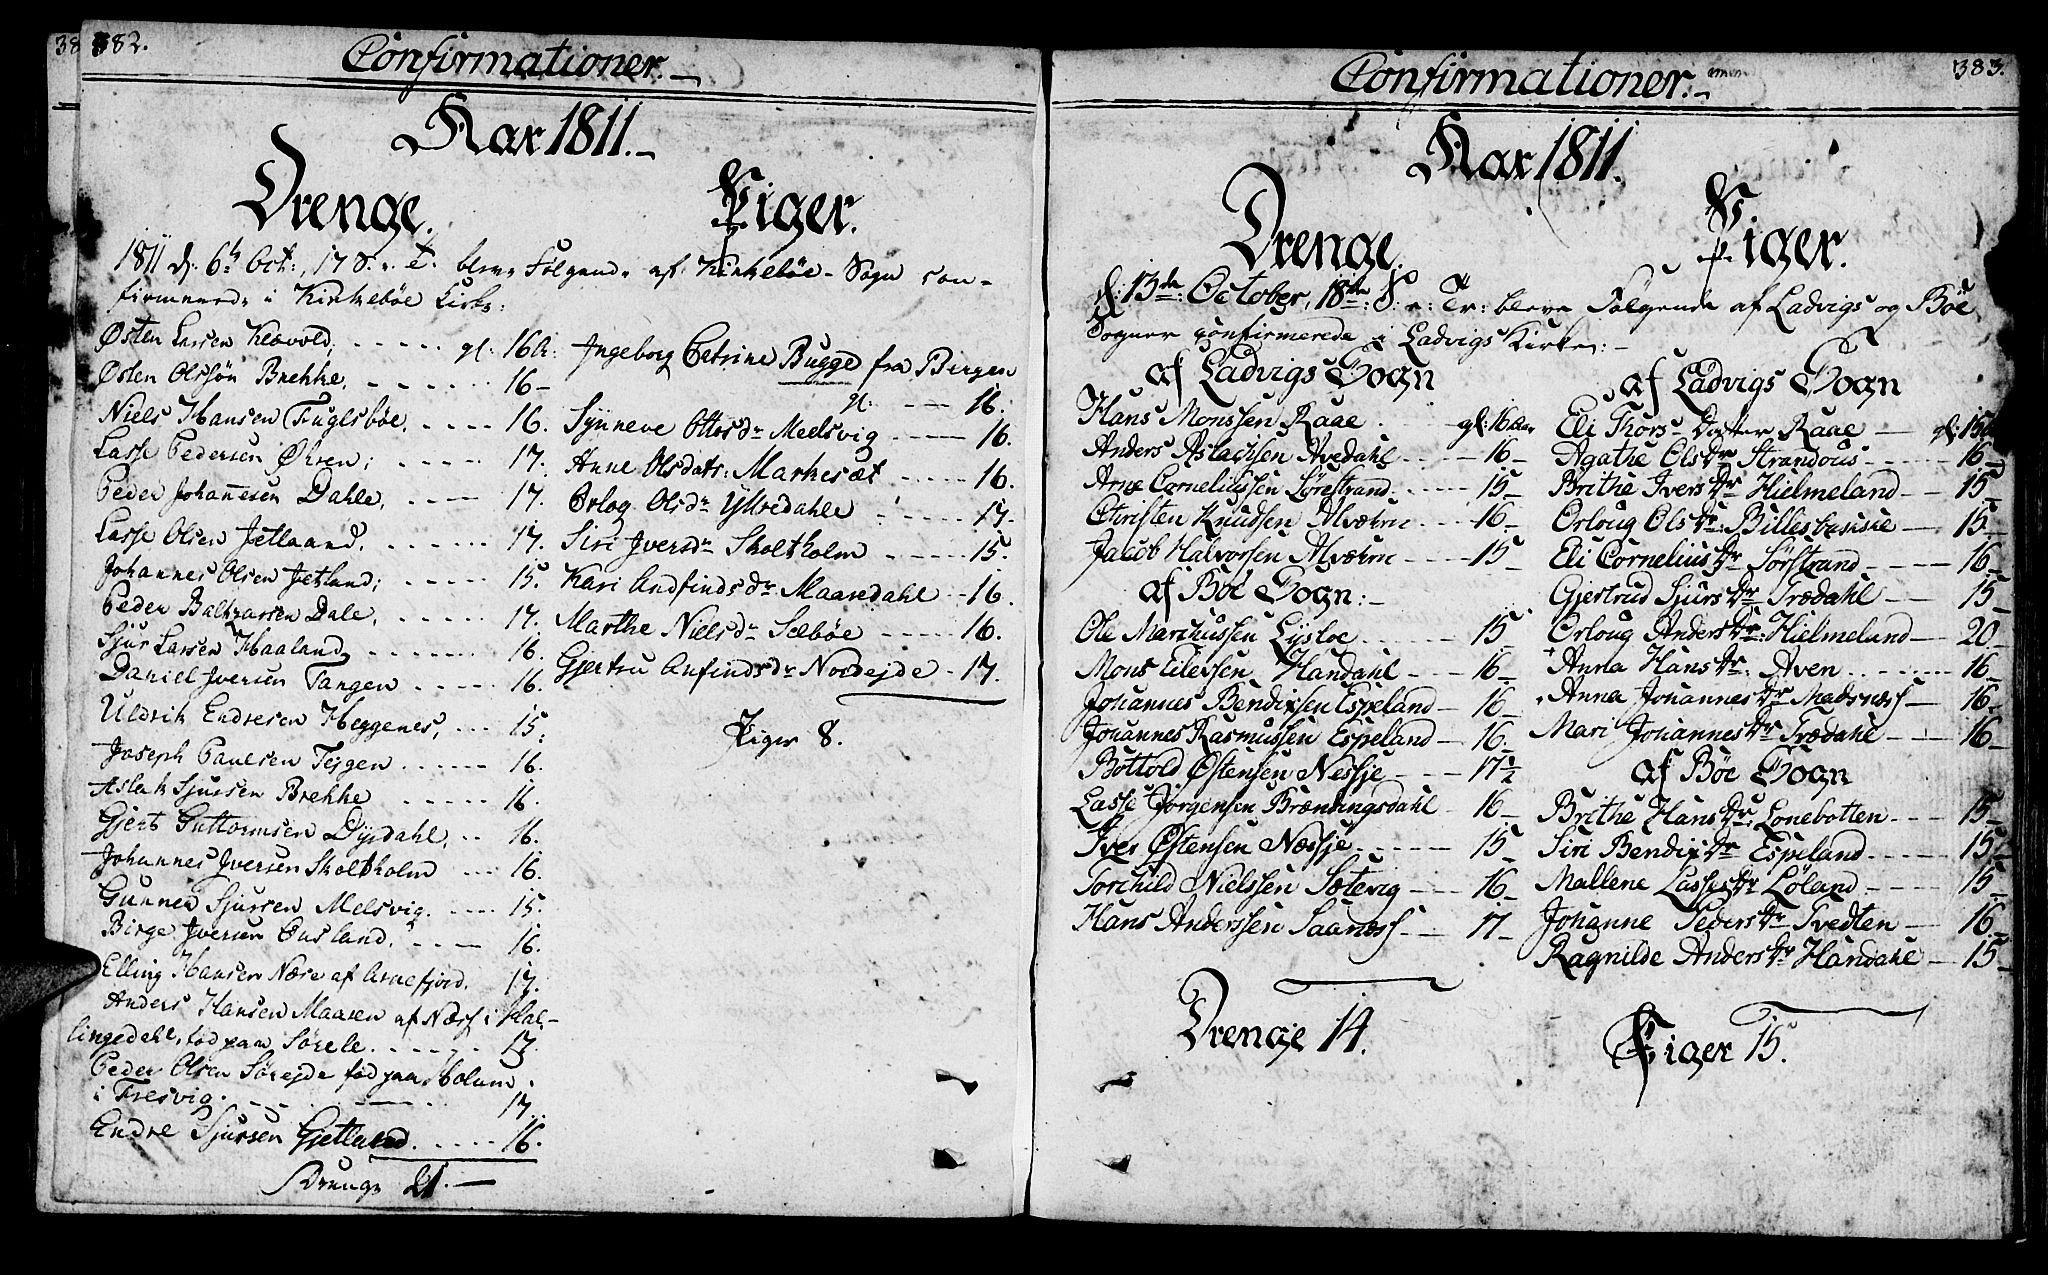 382.
Confirmationer.
Aar 1811.
Drenge.
1811 d: 6te Oct:, 17 S. e. T. bleve Følgende af Kirkebøe Sogn con-
firmerede i Kirkebøe Kirke:
Østen Larsen Kleivold, gl: 16 A:
Østen Olssøn Brekke, 16
Niels Hansen Fuglsbøe, 16.
Lasse Pedersen Øhren; 17.
Peder Johannesen Dahle, 17.
Lasse Olsen Jetlaand, 17.
Johannes Olsen Jetland; 15.
Peder Baltzarsen Dale, 17.
Sjur Larsen Haaland, 16.
Daniel Iversen Tangen 16.
Uldrik Endresen Heggenes, 15.
Joseph Paulsen Tejgen 16.
Aslak Sjursen Brekke 16.
Gjert Guttormsen Dysdahl, 16.
Johannes Iversen Skoltholm 16.
Gunner Sjursen Melsvig. 15.
Birge Iversen Ousland, 16.
Elling Hansen Nære af Arnefjord. 17.
Anders Hansen Maasen af Næss i Hal-
lingedehl, fød paa Sørele. 17.
Peder Olsen Sørejde fød paa Bolum
i Fresvig. 17.
Endre Sjursen Gjetland. 16.
Drenge 21.
Piger.
Ingeborg Petrine Bugge fra Bergen
gl: 16.
Synneve Ottosdr Meelsvig 16.
Anne Olsdatr: Markesæt 16.
Orlog Olsdr Yttredahle 17.
Siri Iversdr Skoltholm 15.
Kari Andfindsdr Maaredahl 16.
Marthe Nielsdr Sæbøe 16.
Gjertru Anfindsdr Nordejde 17.
Piger 8.
383.
Confirmationer.
Aar 1811.
Drenge.
Piger.
d: 13de: October, 18de: S: e: Tr: bleve Følgende af Ladvigs og Böe
Sogner confirmerede i Ladvigs Kirke:
af Ladvigs Sogn
Hans Monssen Raae gl: 16 Aar
Anders Aslachsen Avedahl 16
Arne Corneliussen Sørestrand 15
Christen Knudsen Alværn 16
Jacob Halvorsen Alværn 15
af Böe Sogn:
Ole Marchussen Lysloe 15
Mons Eilevsen Handahl 16
Johannes Bendixsen Espeland 16
Johannes Rasmussen Espeland 16
Bottold Østensen Nessje 17½
Lasse Jørgensen Brændingsdahl 16
Iver Østensen Næssje 15
Torchild Nielssen Sætevig 16
Hans Anderssen Saanæss 17
Drenge 14.
af Ladvigs Sogn
Eli Thors Datter Raae gl: 15
Agathe Olsdr Strandous 16
Brithe Iversdr Hielmeland 15
Orloug Olsdr: Billesbusie 15
Eli Corneliusdr Sørstrand 16
Gjertrud Sjursdr Trædahl 15
Orloug Andersdr: Hielmeland 20
Anna Hansdr: Aven 16
Anna Johannesdr Madsnæss 16
Mari Johannesdr Trædahl 16
af Böe Sogn
Brithe Hansdr: Lonebotten 15
Siri Bendixdr Espeland 15
Mallene Lassesdr Løland 15
Johanne Pedersdr Tvedten 16
Ragnilde Andersdr Handahl 15
Piger 15.